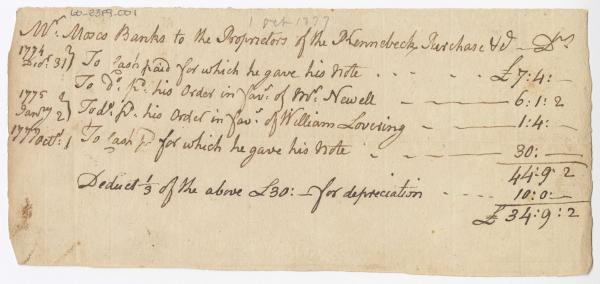 60-2389-001
1 Oct 1777
Mr. Moses Banks to the Proprietors of the Kennebeck Purchase &c — Dr.
1774 Decr. 31 } To Cash paid for which he gave his Note - - - - £7:4:—
To Do. pd. his Order in favr. of Mr. Newell — — 6:1:2
1775 Janry 2 } To do. pd. his Order in favr. of William Lovering — 1:4:—
1777 Octr. 1 To Cash pd for which he gave his Note - - — 30:—
44:9:2
Deduct 1/3 of the above £30:— for depreciation - - - - 10:0:—
£34:9:2